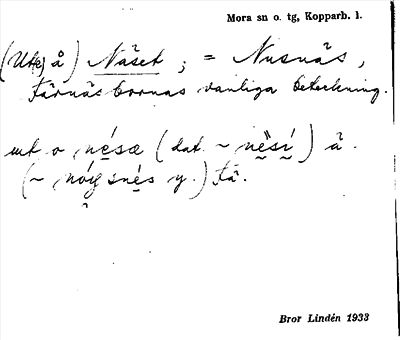 Mora sn o. tg, Kopparb. l.
(Utej å) Näset ; = Nusnäs,
Färnäsbornas vanliga beteckning.
ut o nesæ (dat. ~ nesi) å.
(~ snes y.) tä.
Bror Lindén 1933